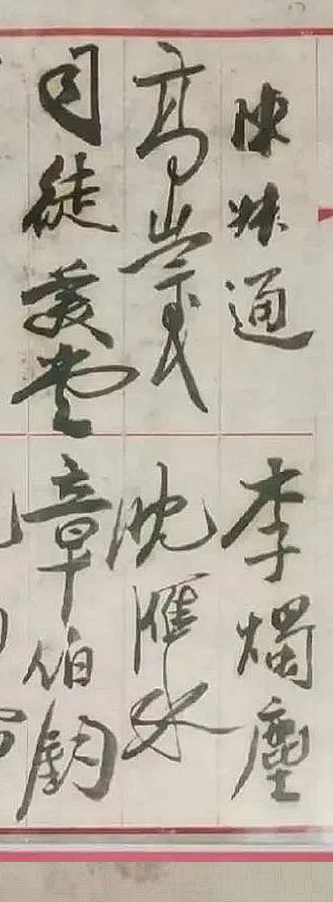 陳叔通
李燭塵
高崇民
沈雁冰
司徒美堂
章伯鈞